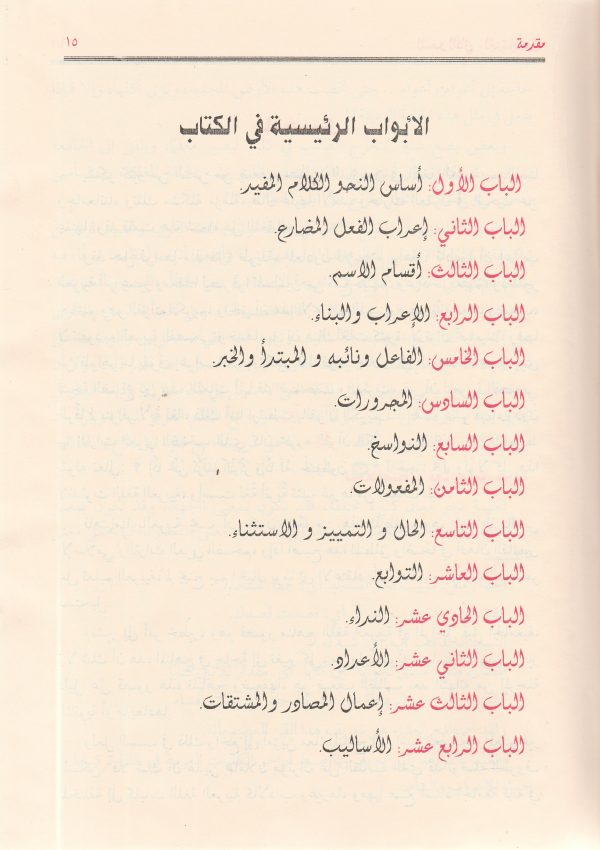 مقدمة ١٥
الأبواب الرئيسية في الكتاب
الباب الأول: أساس النحو الكلام المفيد.
الباب الثاني: إعراب الفعل المضارع.
الباب الثالث: أقسام الاسم.
الباب الرابع: الإعراب والبناء.
الباب الخامس: الفاعل ونائبه و المبتدأ والخبر.
الباب السادس: المجرورات.
الباب السابع: النواسخ.
الباب الثامن: المفعولات.
الباب التاسع: الحال و التمييز و الاستثناء.
الباب العاشر: التوابع.
الباب الحادي عشر: النداء.
الباب الثاني عشر: الأعداد.
الباب الثالث عشر: إعمال المصادر والمشتقات.
الباب الرابع عشر: الأساليب.